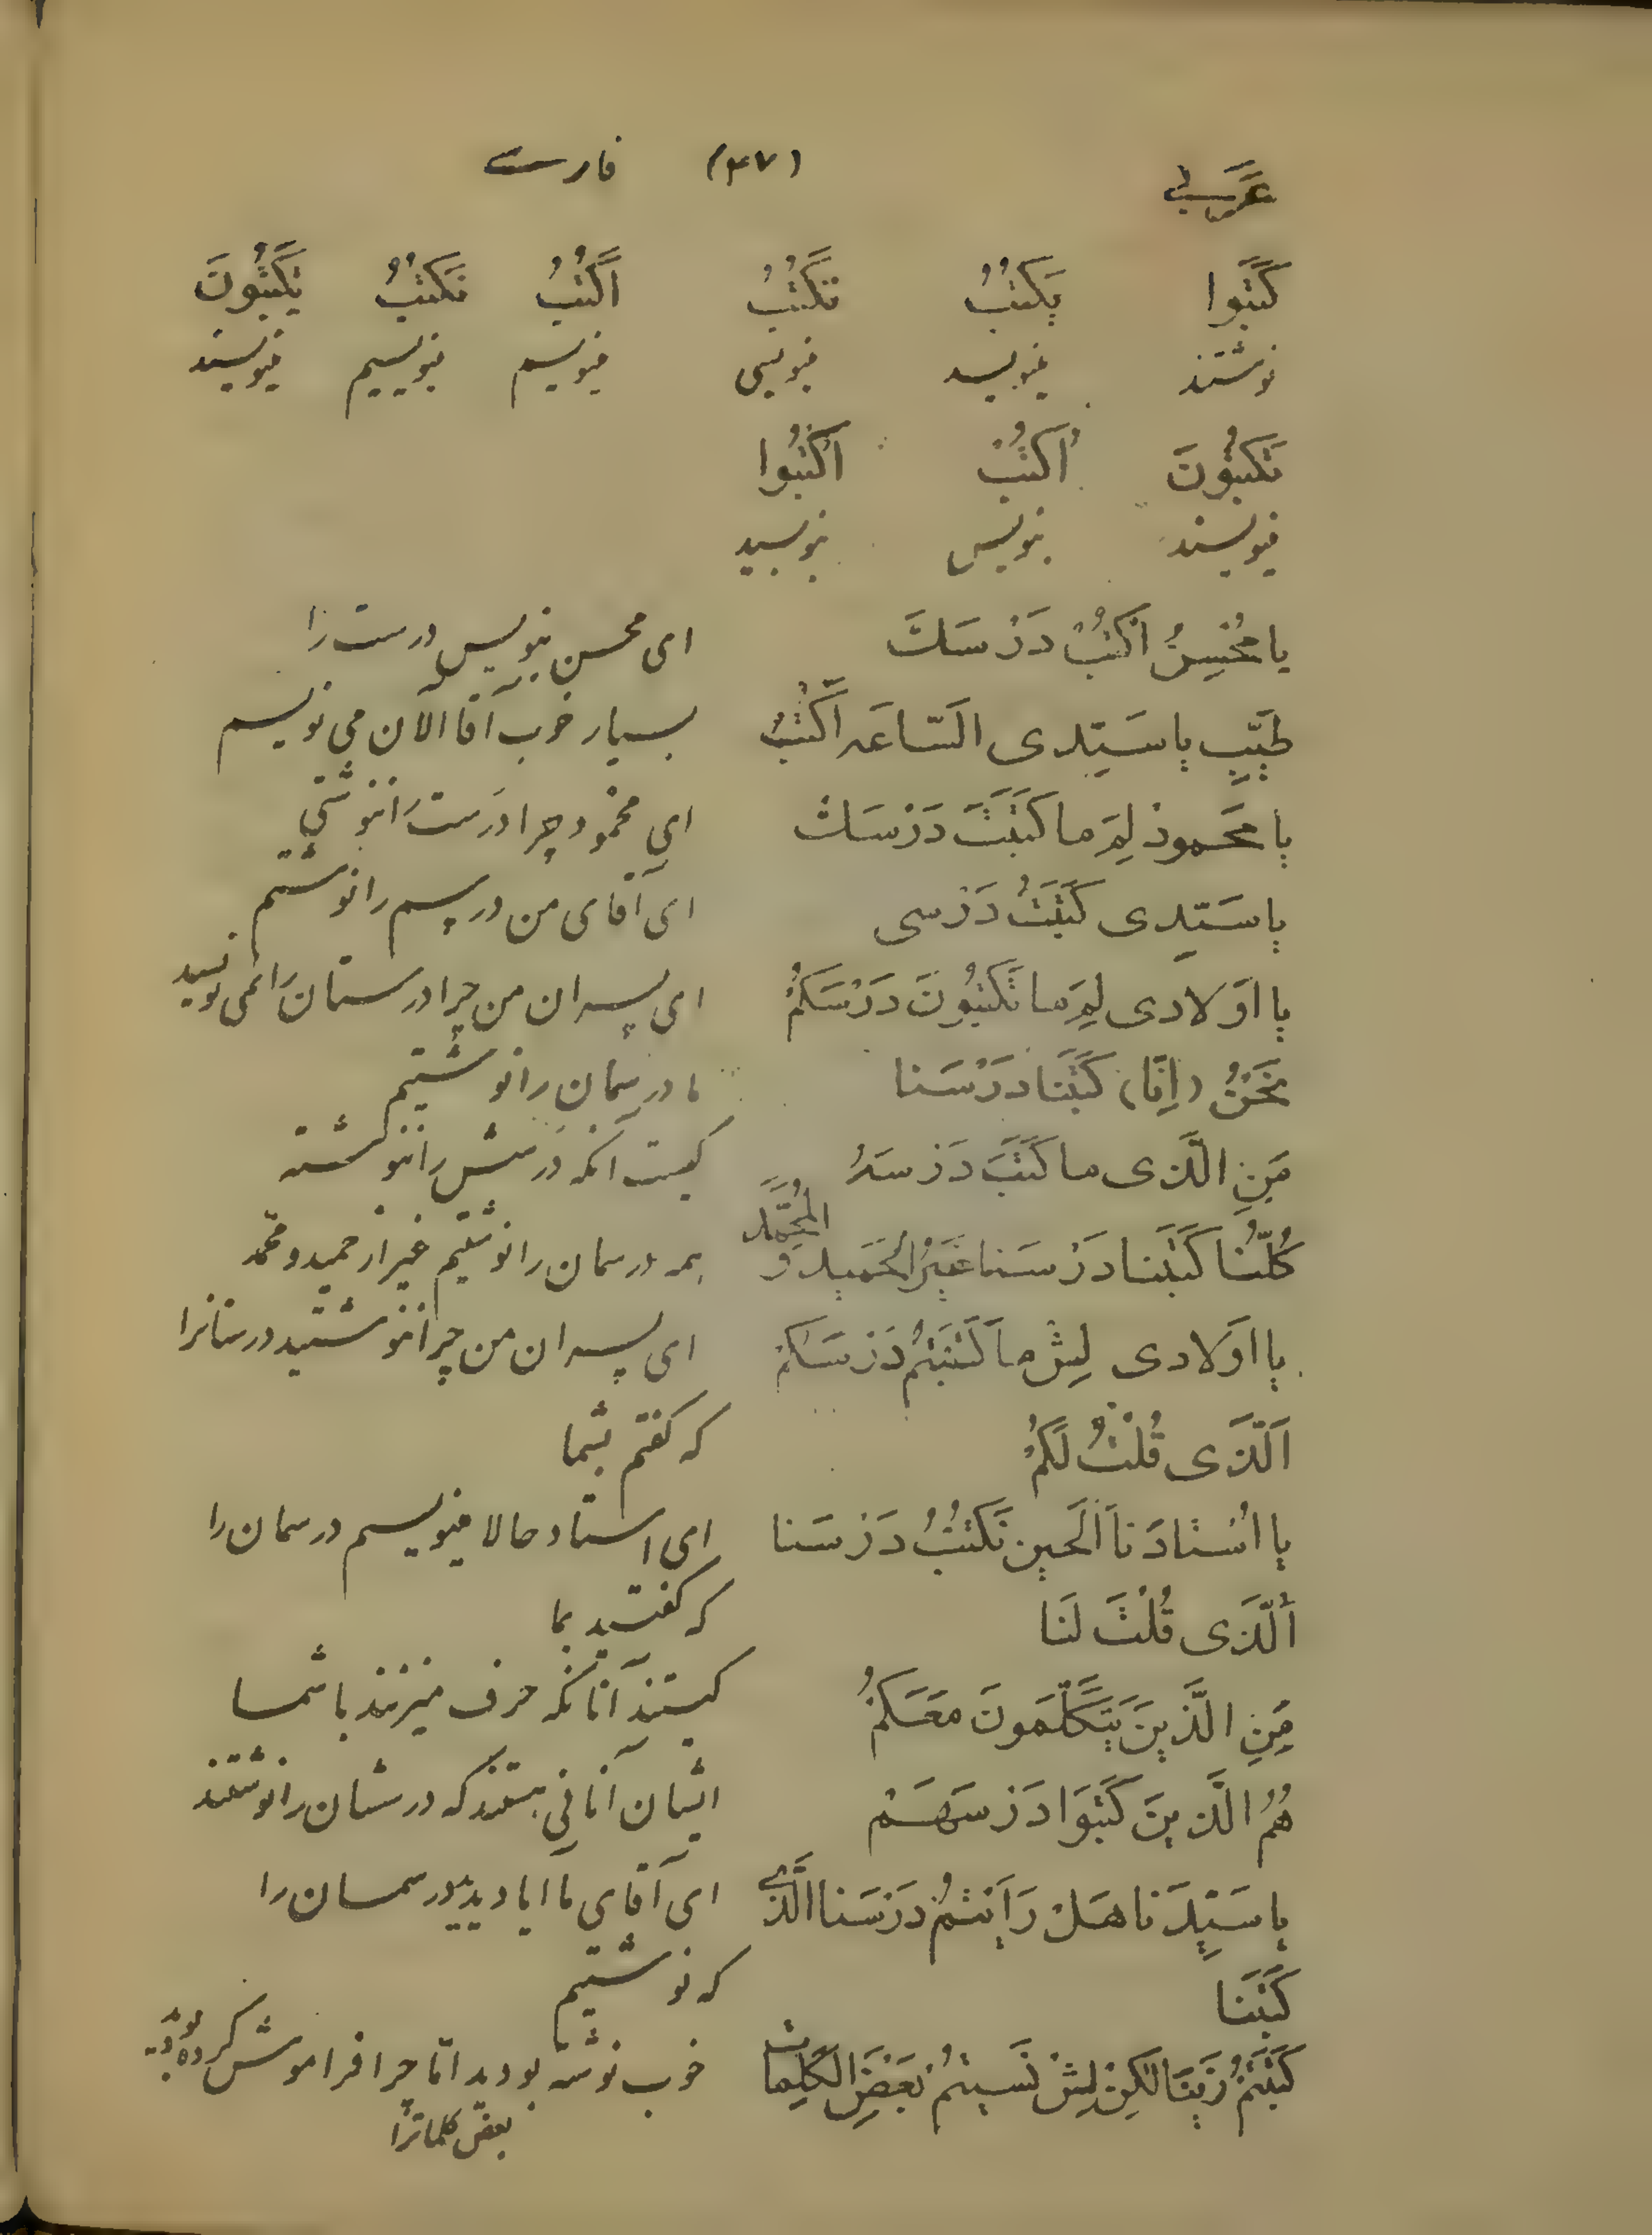 عَرَبی (۴۷) فارسی
كَتَبُوا يَكْتُبُ تَكْتُبُ اَكْتُبُ نَكْتُبُ يَكْتُبُونَ
نوشتند مینویسد مینویسی مینویسم مینویسیم مینویسند
تَكْتُبُونَ اُكْتُبْ اُكْتُبُوا
مینویسند بنویس بنویسید
يا مُحْسِنُ اُكْتُبْ دَرْسَكَ ای محسن بنویس درست را
طَيِّب يا سَيِّدی السّاعَه اَكْتُبُ بسیار خوب آقا الآن می نویسم
يا مَحمودْ لِمَ ما كَتَبْتَ دَرْسَكْ ای محمود چرا درست را ننوشتی
يا سَيِّدی كَتَبْتُ دَرْسی ای آقای من درسم را نوشتم
يا اَوْلادی لِمَ ما تَكْتُبُونَ دَرْسَكُمْ ای پسران من چرا درستان را نمی نویسید
نَحْنُ (اِنّا) كَتَبْنا دَرْسَنا ما درسمان را نوشتیم
مَنِ الَّذی ما كَتَبَ دَرْسَهُ کیست آنکه درسش را ننوشته
كُلُّنا كَتَبْنا دَرْسَنا غَيْرُ الْحَميد وَ الْمُحَمَّد همه درسمان را نوشتیم غیر از حمید و محمد
يا اَوْلادی لِيشْ ما كَتَبْتُمْ دَرْسَكُمْ ای پسران من چرا ننوشتید درستانرا
اَلَّذی قُلْتُ لَكُمْ که گفتم بشما
يا اُسْتادَنا اَلْحين نَكْتُبُ دَرْسَنا ای استاد حالا مینویسم درسمان را
اَلَّذی قُلْتَ لَنا که گفتید بما
مَنِ الَّذينَ يَتَكَلَّمُونَ مَعَكُمْ کیستند آنانکه حرف میزنند با شما
هُمُ الَّذينَ كَتَبُوا دَرْسَهُمْ ایشان آنانی هستند که درسشان را نوشتند
يا سَيِّدَنا هَلْ رَاَيْتُمْ دَرْسَنا الَّذی ای آقای ما ایا دیدید درسمان را
كَتَبْنا که نوشتیم
كَتَبْتُمْ زَيْنا لكِنْ لِيشْ نَسيتُمْ بَعْضَ الْكَلِمات خوب نوشته بودید امّا چرا فراموش کرده بودید
بعض کلماترا